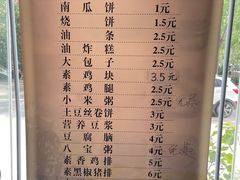 南瓜饼 1元
烧饼 1.5元
油条 2.5元
油炸糕 2.5元
大包子 2.5元
素鸡块 3.5元
素鸡腿 2.5元
小米粥 2.5元
土豆丝卷饼 3元
营养豆浆 3元
豆腐脑 4元
八宝粥 4元
素香鸡排 5元
素黑椒猪排 6元